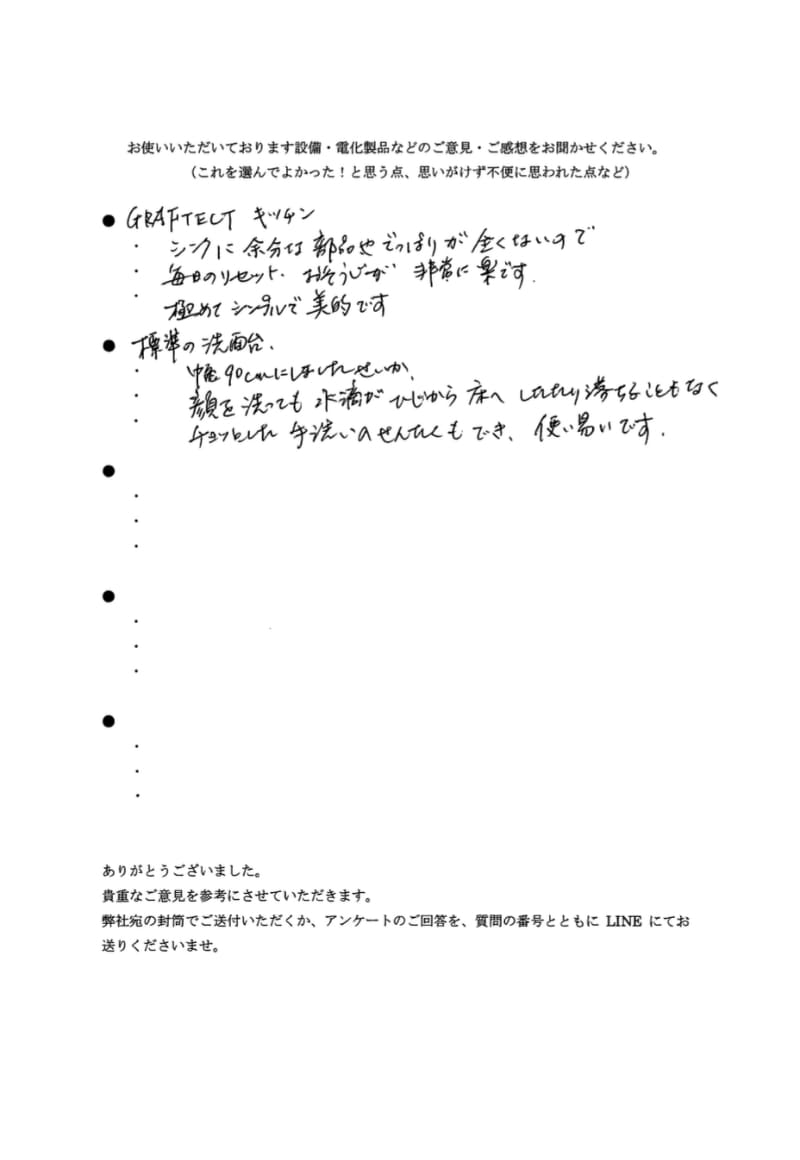 お使いいただいております設備・電化製品などのご意見・ご感想をお聞かせください。
（これを選んでよかった！と思う点、思いがけず不便に思われた点など）
● GRAFTECT キッチン
・ シンクに余分な部品やでっぱりが全くないので
・ 毎日のリセット．おそうじが 非常に楽です．
・ 極めてシンプルで美的です
● 標準の洗面台．
・ 幅90cmにしましたせいか、
・ 顔を洗っても水滴がひじから床へしたたり落ちることもなく
・ チョットした手洗いのせんたくもでき、使い易いです．
●
・
・
・
●
・
・
・
●
・
・
・
ありがとうございました。
貴重なご意見を参考にさせていただきます。
弊社宛の封筒でご送付いただくか、アンケートのご回答を、質問の番号とともに LINE にてお
送りくださいませ。